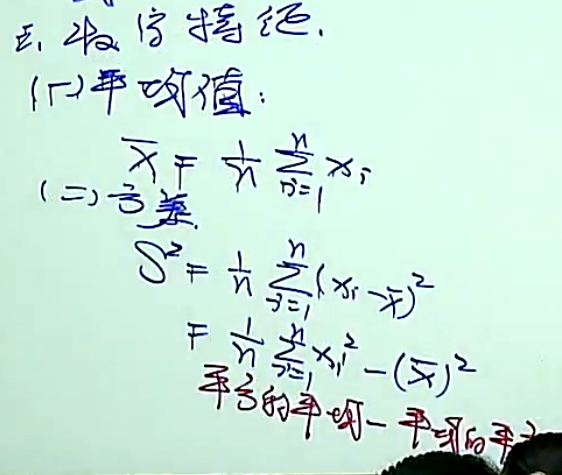 三、数字特征.
(一)平均值:
x̄ = 1/n ∑_{i=1}^{n} x_i
(二)方差
S² = 1/n ∑_{i=1}^{n} (x_i - x̄)²
= 1/n ∑_{i=1}^{n} x_i² - (x̄)²
平方的平均 - 平均的平方